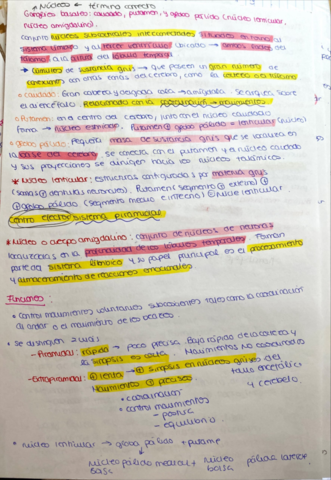 * Núcleo ← término correcto
Ganglios basales: caudado, putamen, y globo pálido (núcleo lenticular,
núcleo amigdalino).
conjunto núcleos subcorticales interconectados
sistema límbico y al tercer ventrículo. Ubicado → ambos lados del
tálamo a la altura del lóbulo temporal
→ cúmulos de sustancia gris → que poseen un gran número de
conexiones con otras áreas del cerebro, como la corteza o el tálamo
o caudado: Gran cabeza y delgada cola → amígdala. Se arquea sobre
el diencéfalo. Relacionado con la → movimientos
o Putamen: en el centro del cerebro, junto con el núcleo caudado
forma → núcleo estriado. Putamen + globo pálido = lenticular (núcleo)
o globo pálido: Pequeña masa de sustancia gris que se localiza en
la base del cerebro. Se conecta con el putamen y el núcleo caudado
y sus proyecciones se dirigen hacia los núcleos talámicos.
* Núcleo lenticular: estructuras configuradas por materia gris
Putamen (segmento externo)
globo pálido (segmento medio e interno)
centro efector sistema piramidal
* Núcleo o cuerpo amigdalino: conjunto de núcleos de neuronas
localizadas en la profundidad de los lóbulos temporales. Forman
parte del sistema límbico y su papel principal es el procesamiento
y almacenamiento de reacciones emocionales
Funciones:
• control movimientos voluntarios subconscientes tales como la coordinación
al andar o el movimiento de los ojos
• se distinguen 2 vías:
- Piramidal: rápida → poca precisa. Baja rápido desde corteza y
la sinapsis es corta. Movimientos No coordinados
- Extrapiramidal: lenta → sinapsis en núcleos grises del
Movimiento precisos. tallo encefálico
• coordinación y cerebelo
• control movimientos
- postura
- equilibrio
• núcleo lenticular → globo pálido + putamen
núcleo pálido medial + núcleo pálido lateral